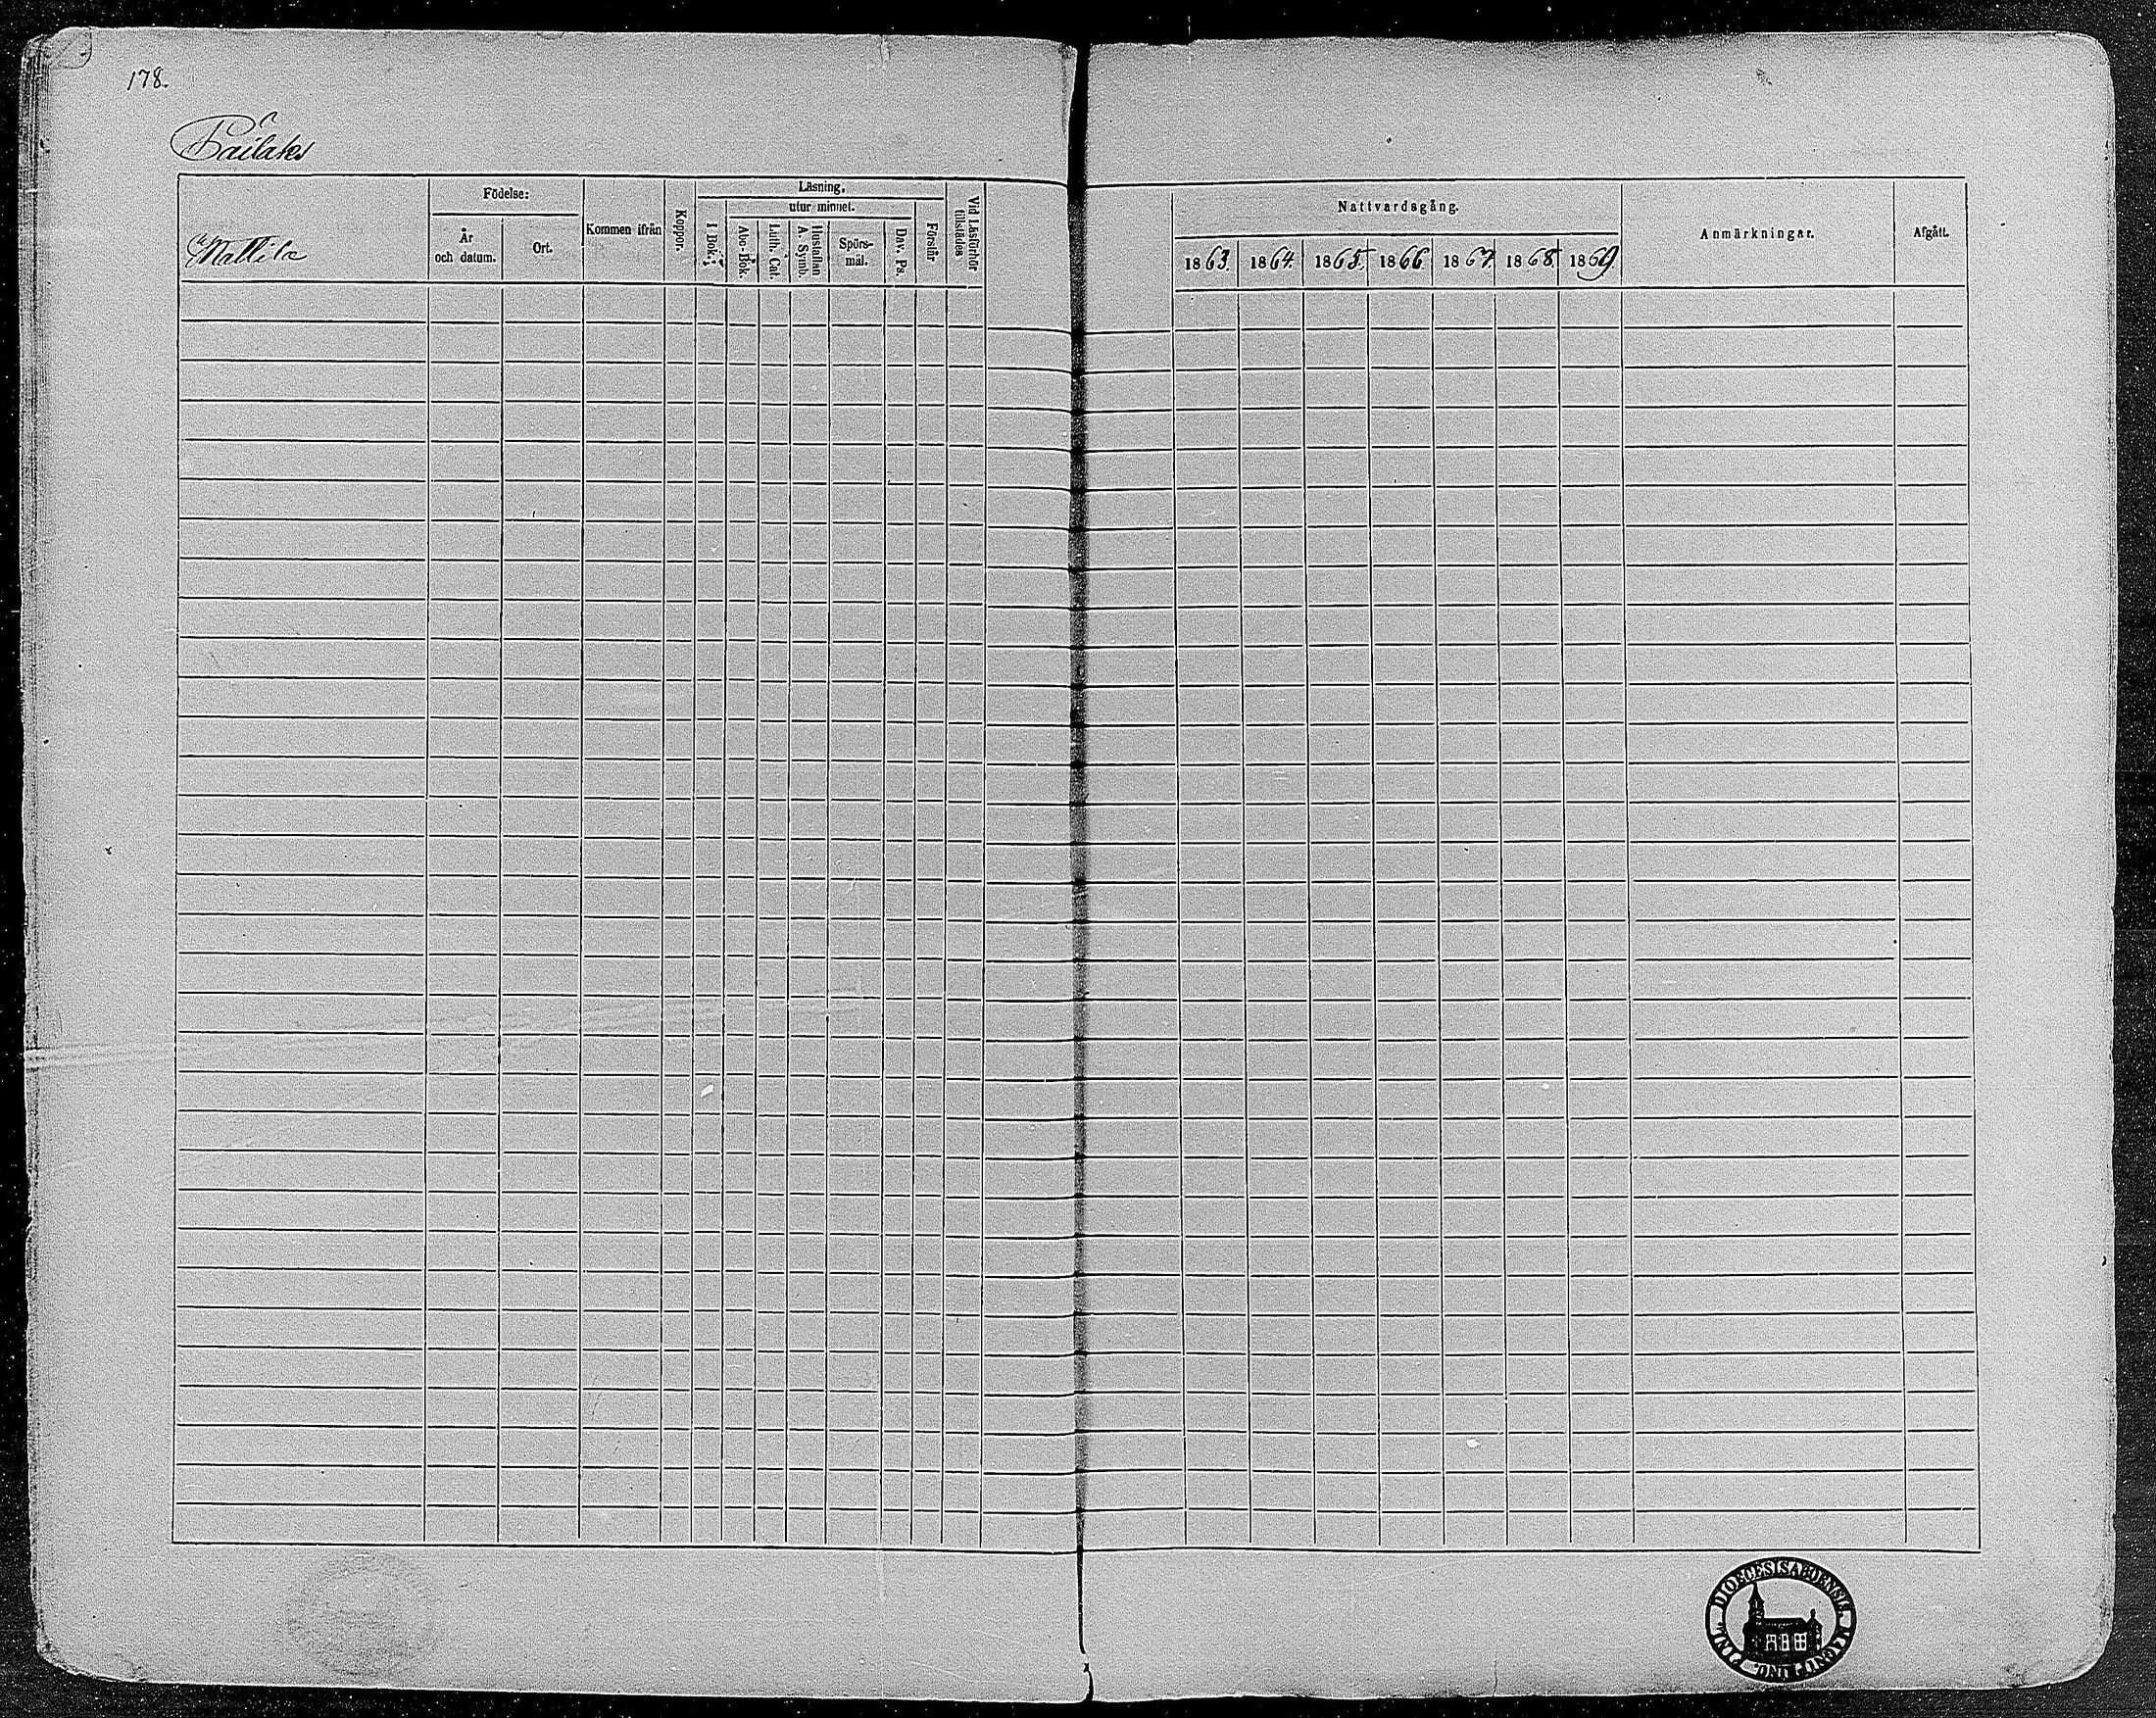 178.
Födelse:
Kommen ifrån
Koppor.
Läsning,
utur minnet.
I Bok.
Abc-Bok.
Luth. Cat.
Hustaflan A. Symb.
Spörs-
mål.
Dav. Ps.
Förstår
Vid Läsförhör tillstädes
År
och datum.
Ort.
Mattila
Nattvardsgång.
Anmärkningar.
Afgått.
1863. 1864. 1865. 1866 1867. 1868. 1869